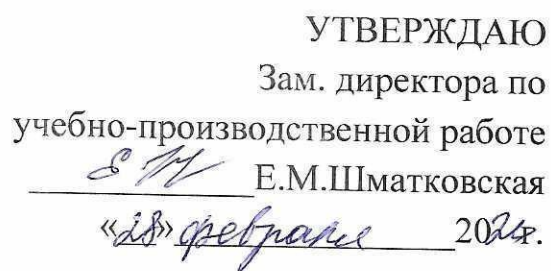 УТВЕРЖДАЮ
Зам. директора по
учебно-производственной работе
Е.М.Шматковская
«28» февраля 202г.